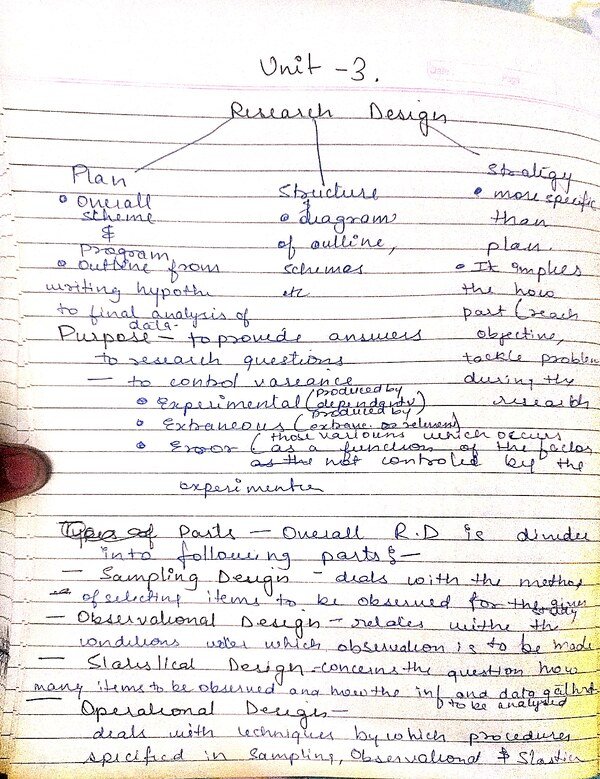 Unit - 3.
Research Design
Plan
• Overall
scheme
&
Program
• Outline from
writing hypoth.
to final analysis of
data.
Structure
• diagram
of outline,
schemas
etc
Strategy
• more specific
than
plan.
• It implies
the how
part (reach
objective,
tackle problem
during the
research
Purpose — to provide answers
to research questions
— to control variance
• Experimental (produced by
dependant v)
• Extraneous (produced by
extrane. or relevant)
• Error (those variouns which occurs
as a function of the factos
as the not controled by the
experimenter
Types of Parts — Overall R.D is divided
into following parts :—
— Sampling Design - deals with the method
of selecting items to be observed for the given
study
— Observational Design - relates withe th
conditions under which observation is to be made
— Statistical Design - concerns the question how
many items to be observed and how the inf and data gathrd
to be analysed
— Operational Design —
deals with techniques by which procedures
specified in Sampling, Observational &